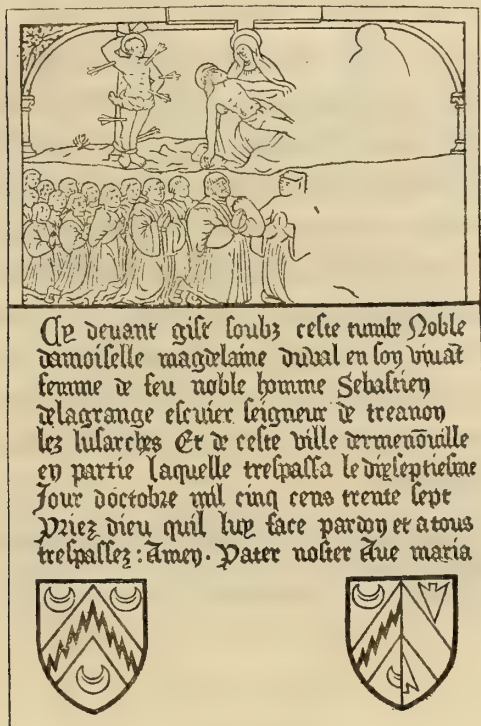 Cy deuant gist soubz ceste tumbe Noble
damoiselle magdelaine duual en son viuāt
femme de feu noble homme Sebastien
delagrange escuier seigneur de treanon
lez lusarches Et de ceste ville dermenōuille
en partie laquelle trespassa le dixseptiesme
Jour doctobre mil cinq cens trente sept
Priez dieu quil luy face pardon et a tous
trespassez : Amen . Pater noster Aue maria